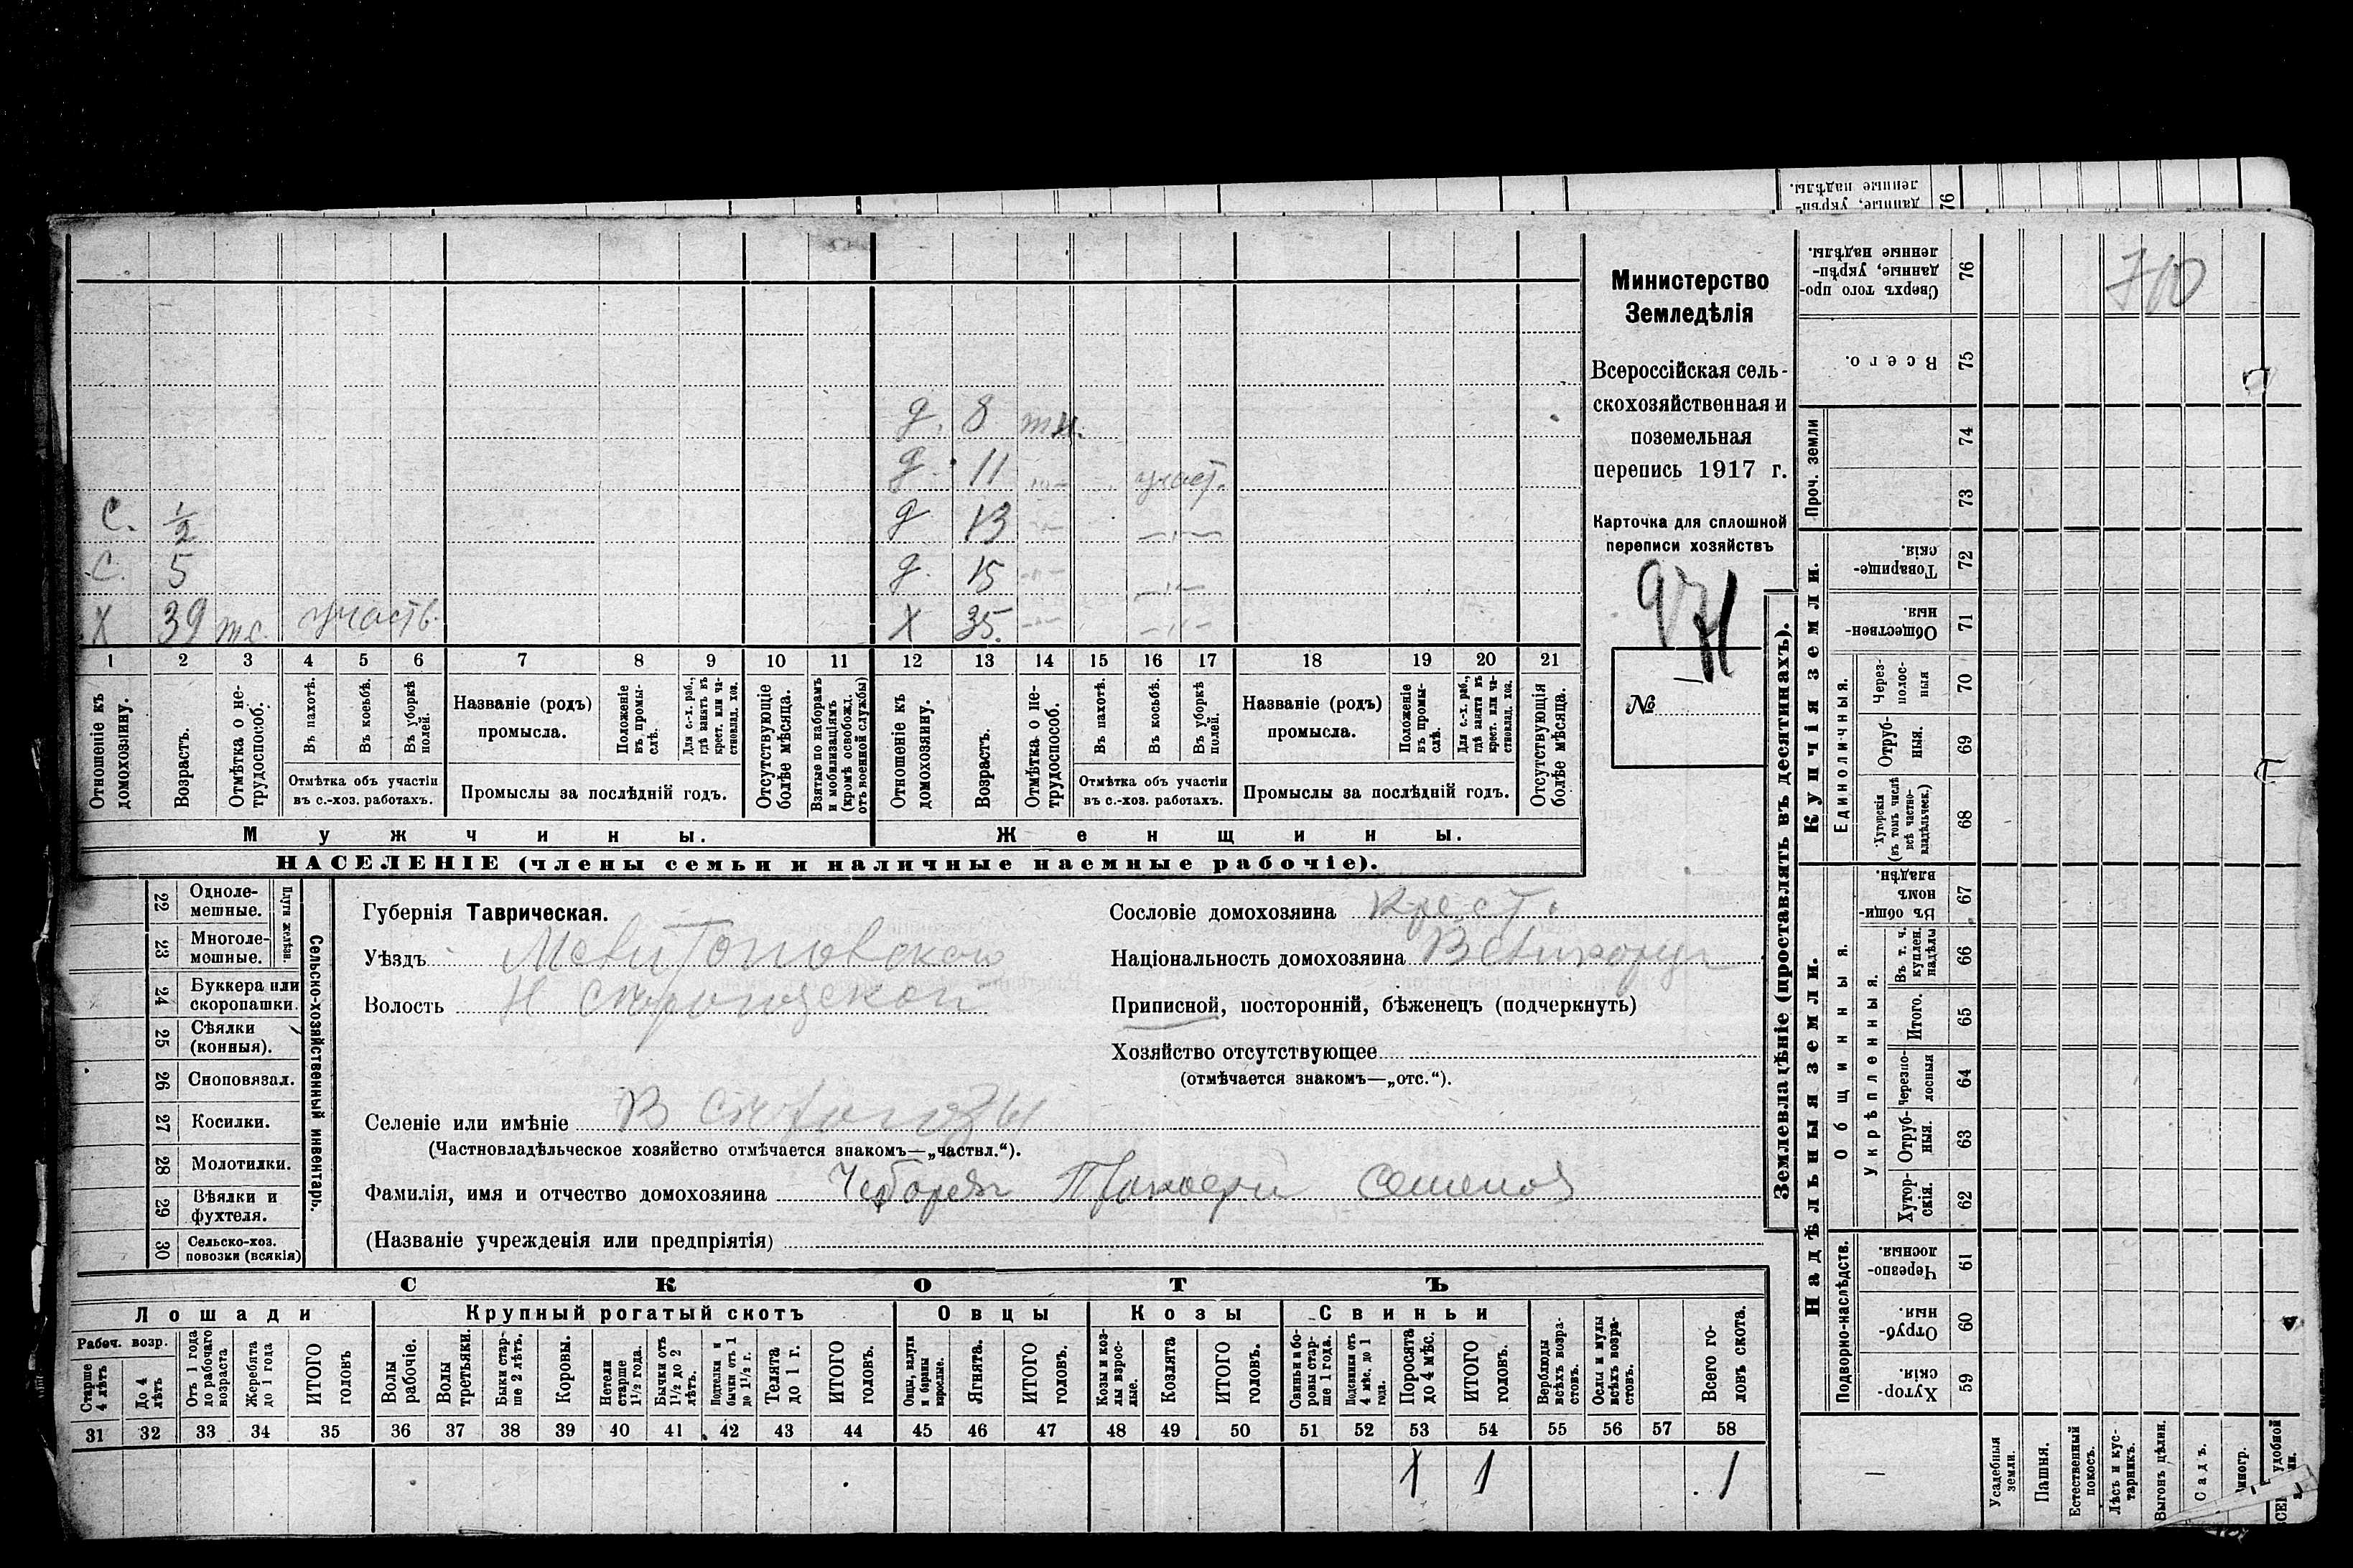 ленные надѣлы.
данные, укрѣп-
76
Министерство
Земледѣлія
Всероссійская сель-
скохозяйственная и
поземельная
перепись 1917 г.
Карточка для сплошной
переписи хозяйствъ
№
д. 8 тн.
д. 11 -"- участ.
С. 1/2 д 13 -"- -"-
С. 5 д. 15 -"- -"-
Х 39 тс. участв. Х 35. -"- -"-
1 2 3 4 5 6 7 8 9 10 11 12 13 14 15 16 17 18 19 20 21
Отношеніе къ домохозяину.
Возрастъ.
Отмѣтка о не-трудоспособ.
Въ пахотѣ.
Въ косьбѣ.
Въ уборкѣ полей.
Отмѣтка объ участіи
въ с.-хоз. работахъ.
Названіе (родъ)
промысла.
Положеніе въ промы-слѣ.
Для с.-х. раб., гдѣ занятъ въ крест. или ча-стновлад. хоз.
Промыслы за послѣдній годъ.
Отсутствующіе болѣе мѣсяца.
Взятые по наборамъ и мобилизаціямъ (кромѣ освобожд. отъ военной службы)
Отношеніе къ домохозяину.
Возрастъ.
Отмѣтка о не-трудоспособ.
Въ пахотѣ.
Въ косьбѣ.
Въ уборкѣ полей.
Отмѣтка объ участіи
въ с.-хоз. работахъ.
Названіе (родъ)
промысла.
Положеніе въ промы-слѣ.
Для с.-х. раб., гдѣ занята въ крест. или ча-стновлад. хоз.
Промыслы за послѣдній годъ.
Отсутствующія болѣе мѣсяца.
Мужчины. Женщины.
НАСЕЛЕНІЕ (члены семьи и наличные наемные рабочіе).
Сельско-хозяйственный инвентарь.
Плуги желѣзн.
22 Одноле-мешные.
23 Многоле-мешные.
24 Буккера или скоропашки.
25 Сѣялки (конныя).
26 Сноповязал.
27 Косилки.
28 Молотилки.
29 Вѣялки и фухтеля.
30 Сельско-хоз. повозки (всякія)
Губернія Таврическая.
Уѣздъ Мелитопольскаго
Волость
Селеніе или имѣніе
(Частновладѣльческое хозяйство отмѣчается знакомъ—„частвл.“).
Фамилія, имя и отчество домохозяина
(Названіе учрежденія или предпріятія)
Сословіе домохозяина крест.
Національность домохозяина Великорус
Приписной, посторонній, бѣженецъ (подчеркнуть)
Хозяйство отсутствующее
(отмѣчается знакомъ—„отс.“).
СКОТЪ
Лошади Крупный рогатый скотъ Овцы Козы Свиньи
Рабоч. возр.
Старше 4 лѣтъ
До 4 лѣтъ
Отъ 1 года до рабочаго возраста
Жеребята до 1 года
ИТОГО головъ
Волы рабочіе.
Волы третьяки.
Быки стар-ше 2 лѣтъ.
Коровы.
Нетели старше 1½ года.
Бычки отъ 1½ до 2 лѣтъ.
Подтелки и бычки отъ 1 до 1½ г.
Телята до 1 г.
ИТОГО головъ.
Овцы, валухи и бараны взрослые.
Ягнята.
ИТОГО головъ.
Козы и коз-лы взрос-лые.
Козлята
ИТОГО головъ.
Свиньи и бо-ровы стар-ше 1 года.
Подсвинки отъ 4 мѣс. до 1 года.
Поросята до 4 мѣс.
ИТОГО головъ.
Верблюды всѣхъ возра-стовъ.
Ослы и мулы всѣхъ возра-стовъ.
Всего го-ловъ скота.
31 32 33 34 35 36 37 38 39 40 41 42 43 44 45 46 47 48 49 50 51 52 53 54 55 56 57 58
1 1 1
Землевладѣніе (проставлять въ десятинахъ).
Купчія земли.
Надѣльныя земли.
Сверхъ того про-данные, укрѣп-ленные надѣлы. 76
Всего. 75
Проч. земли 74
73
Товарище-скія. 72
Обществен-ныя. 71
Единоличныя.
Через-полос-ныя 70
Отруб-ныя. 69
Хуторскія (въ томъ числѣ всѣ частно-владѣльческ.) 68
Общинныя.
Въ общин-номъ владѣн. 67
Укрѣпленныя.
Въ т. ч. куплен. надѣлы 66
Итого. 65
Черезпо-лосныя 64
Отруб-ныя. 63
Хутор-скія. 62
Подворно-наслѣдств.
Черезпо-лосныя. 61
Отруб-ныя. 60
Хутор-скія. 59
Усадебныя земли.
Пашня.
Естественный покосъ.
Лѣсъ и кус-тарникъ.
Выгонъ цѣлин.
Садъ.
удобной